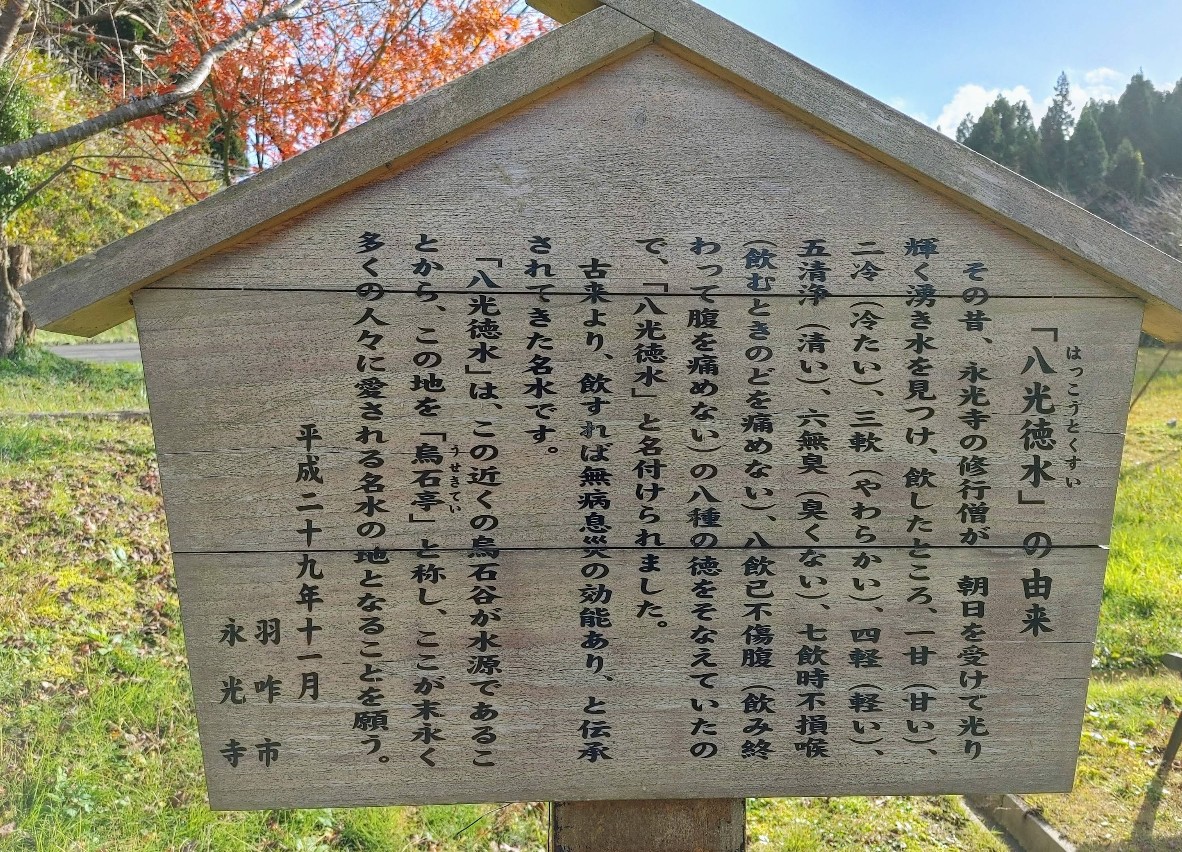 「八光徳水」の由来
はっこうとくすい
その昔、永光寺の修行僧が　朝日を受けて光り
輝く湧き水を見つけ、飲したところ、一甘（甘い）、
二冷（冷たい）、三軟（やわらかい）、四軽（軽い）、
五清浄（清い）、六無臭（臭くない）、七飲時不損喉
（飲むときのどを痛めない）、八飲已不傷腹（飲み終
わって腹を痛めない）の八種の徳をそなえていたの
で、「八光徳水」と名付けられました。
古来より、飲すれば無病息災の効能あり、と伝承
されてきた名水です。
「八光徳水」は、この近くの烏石谷が水源であるこ
とから、この地を「烏石亭」と称し、ここが末永く
うせきてい
多くの人々に愛される名水の地となることを願う。
平成二十九年十一月
羽咋市
永光寺